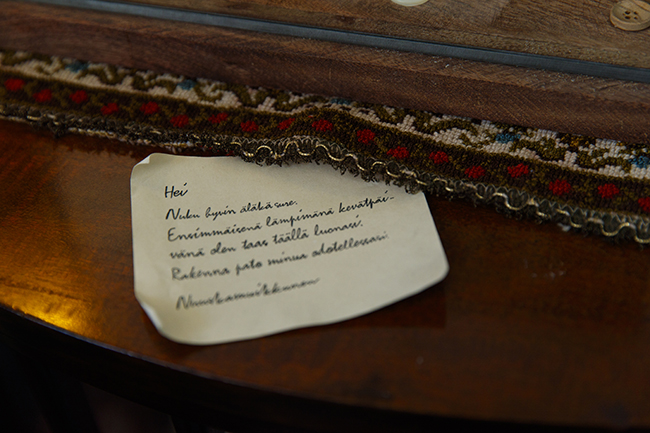 Hei
Nuku hyvin äläkä sure.
Ensimmäisenä lämpimänä kevätpäi-
vänä olen taas täällä luonasi.
Rakenna pato minua odotellessasi.
Nuuskamuikkunen